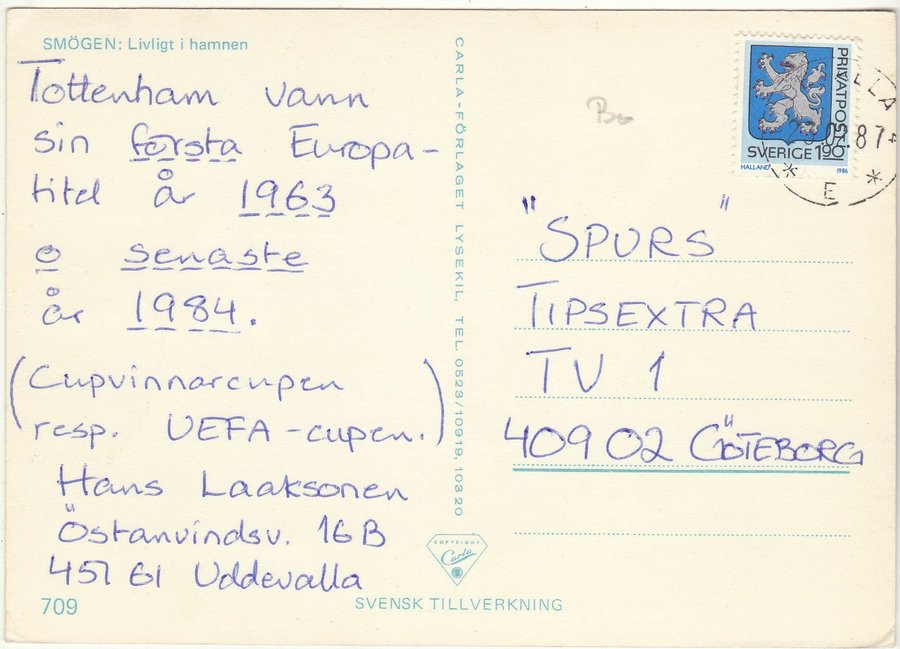 SMÖGEN: Livligt i hamnen
Tottenham vann
sin första Europa-
titel år 1963
o senaste
år 1984.
(Cupvinnarcupen
resp. UEFA-cupen.)
Hans Laaksonen
Östanvindsv. 16B
451 61 Uddevalla
709
CARLA-FÖRLAGET LYSEKIL, TEL. 0523/10919, 10320
COPYRIGHT
Carla
SVENSK TILLVERKNING
PRIVATPOST
SVERIGE 1.90
HALLAND 1986
87
E
"SPURS"
TIPSEXTRA
TV 1
409 02 GÖTEBORG